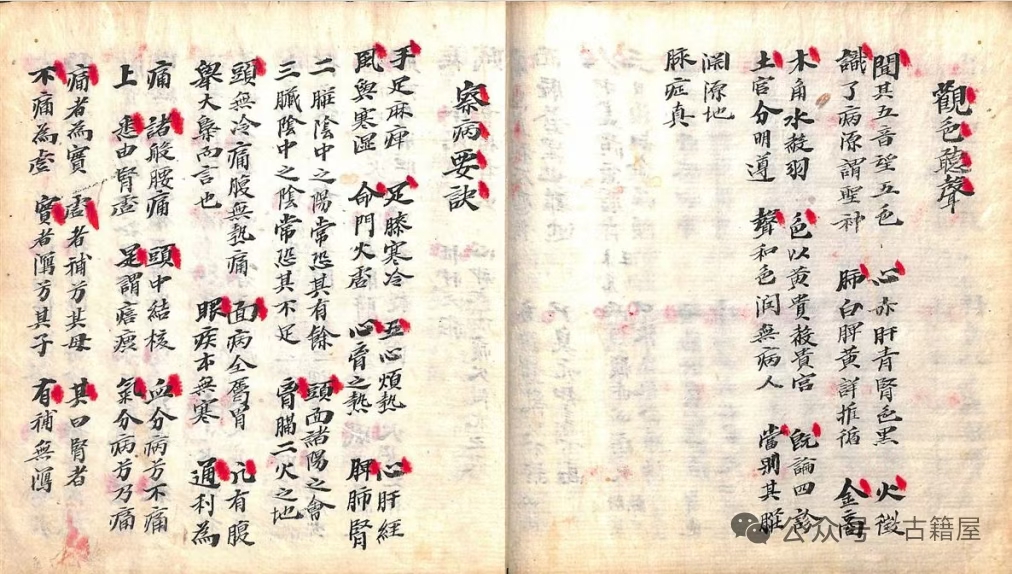 觀色聽聲
聞其五音望五色 心赤肝青腎色黑 火徵
識了病源謂聖神 肺白脾黃詳推循 金商
木角水羽 色以黃貴貴宮 既論四診
土宮分明遵 聲和色润無病人 當別其脏
渊源地
脉症真
察病要訣
手足麻痺 足膝寒冷 五心煩熱 心肝經
風與寒湿 命門火虛 心胃之熱 脾肺腎
二脏陰中之陽常恐其有餘 頭面諸陽之會
三臟陰中之陰常恐其不足 膈二火之地
頭無冷痛腹無熱痛 面病全属胃 凡有腹
舉大槩而言也 眼疾本無寒 通利為
痛 諸般腰痛 頭中結核 血分病芳不痛
上 悉由腎虛 足謂痞痰 氣分病芳乃痛
痛者為實 虛者補芳其母 其曰腎者
不痛為虛 實者瀉芳其子 有補無瀉
公众号·古籍屋